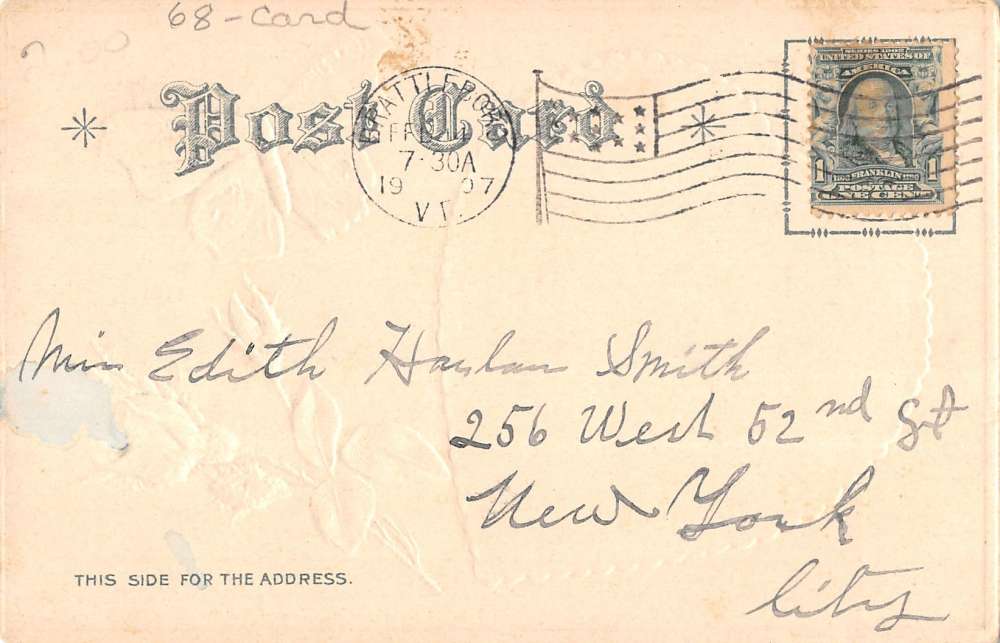 68-Card
Post Card
BRATTLEBORO
FEB
7-30A
1907
VT.
SERIES 1902
UNITED STATES OF
AMERICA
1 FRANKLIN 1
POSTAGE
ONE CENT
Miss Edith Harlan Smith
256 West 52nd St
New York
City
THIS SIDE FOR THE ADDRESS.